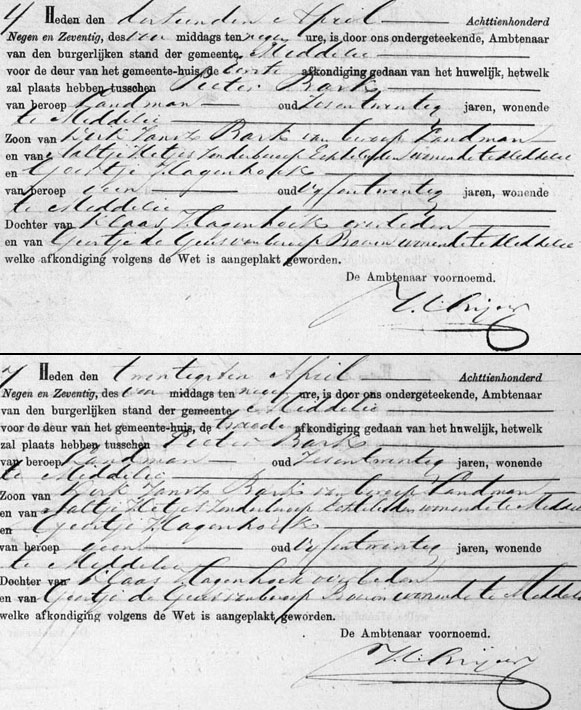 4 Heden den dertienden April Achttienhonderd
Negen en Zeventig, des voor middags ten negen ure, is door ons ondergeteekende, Ambtenaar
van den burgerlijken stand der gemeente Middelie
voor de deur van het gemeente-huis, de Eerste afkondiging gedaan van het huwelijk, hetwelk
zal plaats hebben tusschen Pieter Bark
van beroep Landman oud Zesentwintig jaren, wonende
te Middelie
Zoon van Dirk Jansz Bark van beroep Landman
en van Aaltje Zonder beroep Echtelieden wonende te Middelie
en Geertje Hagenhoek
van beroep geen oud Vijfentwintig jaren, wonende
te Middelie
Dochter van Klaas Hagenhoek overleden
en van Geertje de Geus van beroep Bouwn wonende te Middelie
welke afkondiging volgens de Wet is aangeplakt geworden.
De Ambtenaar voornoemd.
7 Heden den twentigsten April Achttienhonderd
Negen en Zeventig, des voor middags ten negen ure, is door ons ondergeteekende, Ambtenaar
van den burgerlijken stand der gemeente Middelie
voor de deur van het gemeente-huis, de tweede afkondiging gedaan van het huwelijk, hetwelk
zal plaats hebben tusschen Pieter Bark
van beroep Landman oud Zesentwintig jaren, wonende
te Middelie
Zoon van Dirk Jansz Bark van beroep Landman
en van Aaltje Zonder beroep Echtelieden wonende te Middelie
en Geertje Hagenhoek
van beroep geen oud Vijfentwintig jaren, wonende
te Middelie
Dochter van Klaas Hagenhoek overleden
en van Geertje de Geus van beroep Bouwn wonende te Middelie
welke afkondiging volgens de Wet is aangeplakt geworden.
De Ambtenaar voornoemd.